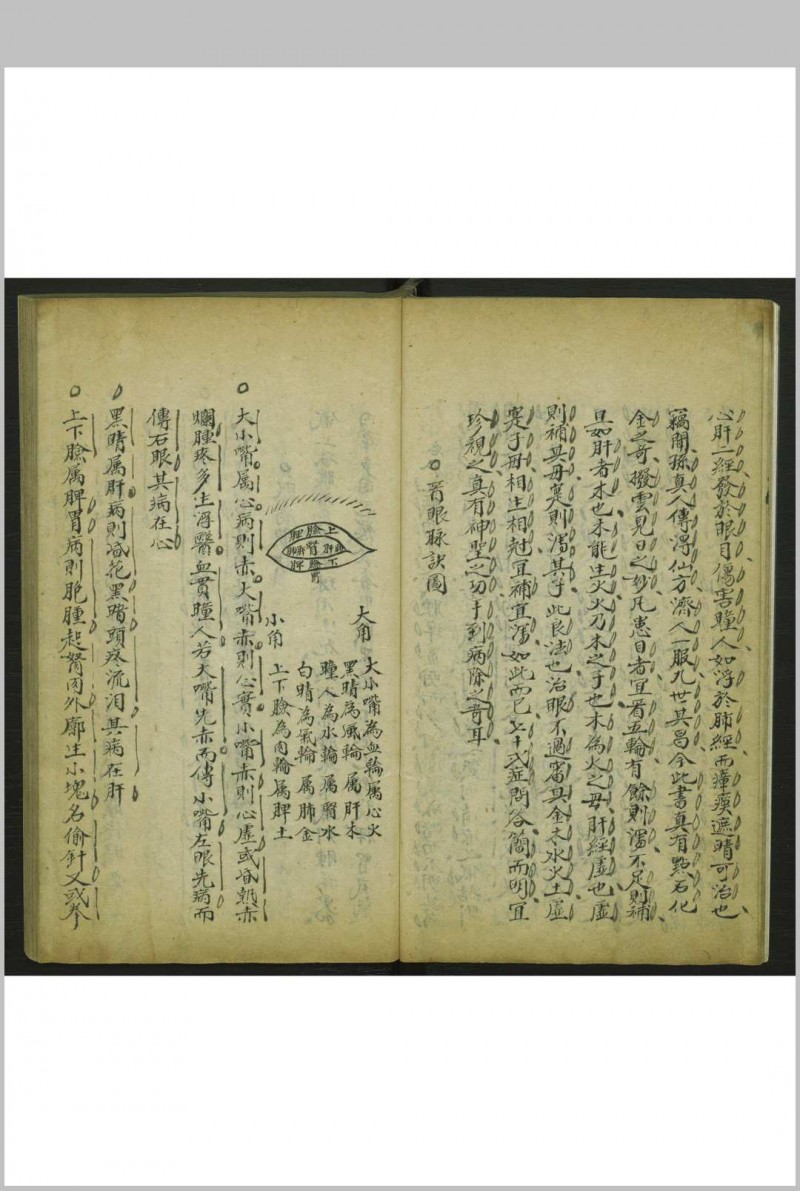 心肝二經發於眼目偒害瞳人如浮於肺經而瘴瘼遮睛可治也
竊聞孫真人傳淂仙方濟人一服九世其昌今此書真有點石化
金之奇撥雲見日之妙凡患目者宜看五輪有餘則瀉不足則補
且如肝者木也木能生火火乃木之子也木為火之母肝經虛也虛
則補其母寔則瀉其子此良法也治眼不過審其金木水火土虛
寔子母相生相尅宜補宜瀉如此而已七十弍症問答簡而明宜
珍視之真有神聖之功于到病除之奇耳
○看眼脉訣圖
大角
上
臉
脾
肝
腎
下
脾
胃
小角
大小嘴為血輪属心火
黑睛為風輪属肝木
瞳人為水輪属腎水
白睛為氣輪属肺金
上下臉為肉輪属脾土
○大小嘴属心病則赤大嘴赤則心實小嘴赤則心虛或昏熱赤
爛腫疼多生浮醫血貫瞳人若大嘴先赤而傳小嘴左眼先病而
傳右眼其病在心
○黑睛属肝病則昏花黑暗頭疼流泪其病在肝
○上下臉属脾胃病則胞腫起胬肉外廓生小塊名偷針又或拳